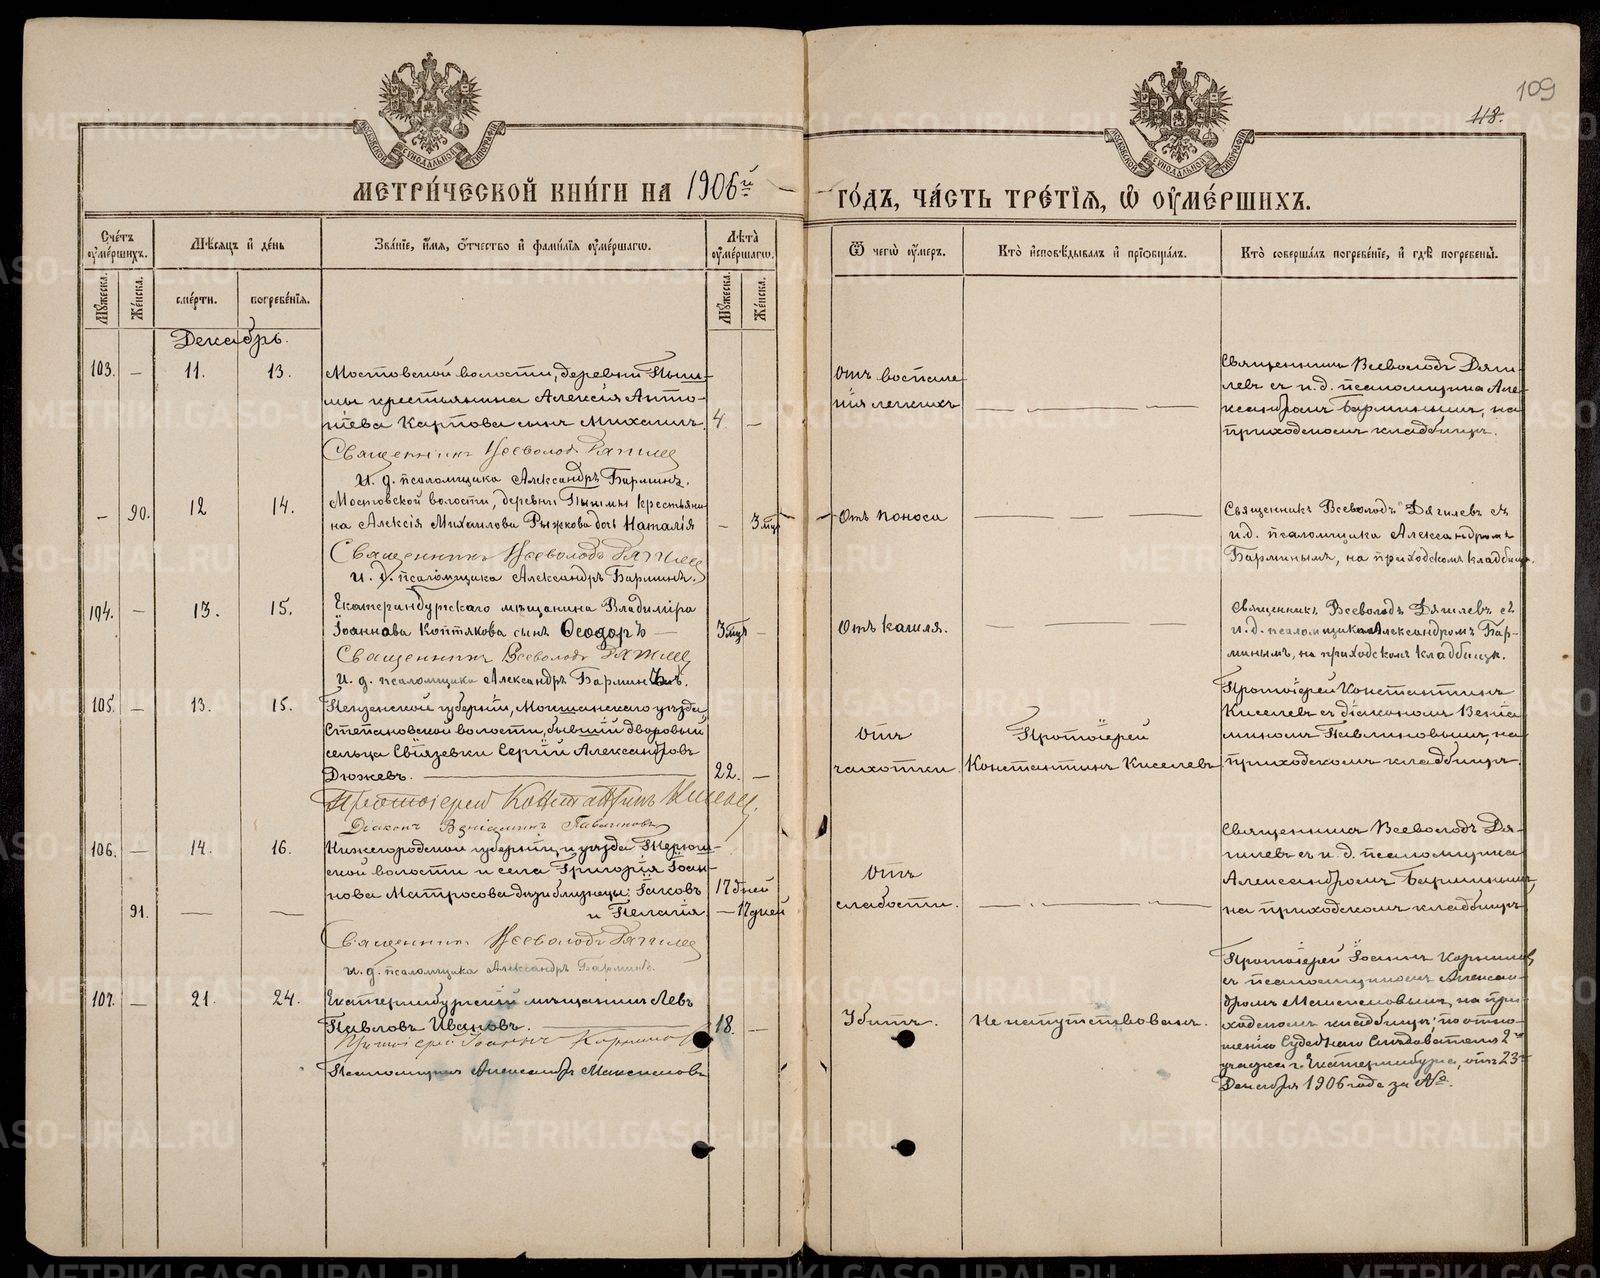 109
118.
МОСКОВСКОЙ СѴНОДАЛЬНОЙ ТИПОГРАФІИ
МОСКОВСКОЙ СѴНОДАЛЬНОЙ ТИПОГРАФІИ
МЕТРИ́ЧЕСКОЙ КНИ́ГИ НА 1906й
ГО́ДЪ, ЧА́СТЬ ТРЕ́ТІѦ, Ѡ҆ ОУ҆МЕ́РШИХЪ.
Сче́тъ оу҆ме́ршихъ.
Мѣ́сяцъ и҆ де́нь
Зва́ніе, и҆́мя, ѻ҆́тчество и҆ фами́лія оу҆ме́ршагѡ.
Лѣ́та оу҆ме́ршагѡ.
Ѿ чегѡ̀ оу҆́меръ.
Кто̀ и҆сповѣ́дывалъ и҆ прїѡбща́лъ.
Кто̀ соверша́лъ погребе́ніе, и҆ гдѣ̀ погребены̀.
Мꙋ́жеска.
Же́нска.
сме́рти.
погребе́нія.
Мꙋ́жеска.
Же́нска.
Декабрь.
103. — 11. 13.
Мостовской волости, деревни Пыш-
мы крестьянина Алексія Анто-
ніева Карпова сынъ Михаилъ. 4. —
Священникъ Всеволодъ Дягилев
И. д. псаломщика Александръ Барминъ.
Отъ воспале-
нія легкихъ
Священникъ Всеволодъ Дяги-
левъ съ и.д. псаломщика Але-
ксандромъ Барминымъ, на
приходскомъ кладбищѣ.
— 90. 12 14.
Мостовской волости, деревни Пышмы крестьяни-
на Алексія Михаилова Рыжкова дочь Наталія — 3 мца
Священникъ Всеволодъ Дягилев
и. д. псаломщика Александръ Барминъ.
Отъ поноса
Священникъ Всеволодъ Дягилевъ съ
и.д. псаломщика Александромъ
Барминымъ, на приходскомъ кладбищѣ.
104. — 13. 15.
Екатеринбургскаго мѣщанина Владиміра
Іоаннова Коптякова сынъ Ѳеодоръ — 3 мца —
Священникъ Всеволодъ Дягилев
И. д. псаломщика Александръ Барминъ.
Отъ кашля.
Священникъ Всеволодъ Дягилевъ съ
и.д. псаломщика Александромъ Бар-
минымъ, на приходскомъ кладбищѣ.
105. — 13. 15.
Пензенской губерніи, Мокшанскаго уѣзда,
Степановской волости, бывшій дворовый
сельца Свіязевки Сергій Александровъ
Дюжевъ. — 22. —
Протоіерей Константинъ Киселев
Діаконъ Веніаминъ Павлиновъ
отъ
чахотки.
Протоіерей
Константинъ Киселевъ
Протоіерей Константинъ
Киселевъ съ діакономъ Веніа-
миномъ Павлиновымъ, на
приходскомъ кладбищѣ.
106. — 14. 16.
Нижегородской губерніи и уѣзда
ской волости и села Григорія Іоан-
нова Матросова дѣти близнецы: Іаковъ 17 дней
91. — — и Пелагія. — 17 дней
Священникъ Всеволодъ Дягилев
и. д. псаломщика Александръ Барминъ.
Отъ
слабости.
Священникъ Всеволодъ Дя-
гилевъ съ и. д. псаломщика
Александромъ Барминымъ,
на приходскомъ кладбищѣ
107. — 21. 24.
Екатеринбургскій мѣщанинъ Левъ
Павловъ Ивановъ. — 18. —
Протоіерей Іоаннъ Корниловъ
Псаломщикъ Александръ
Убитъ.
Не напутствованъ.
Протоіерей Іоаннъ Корнилов
съ псаломщикомъ Алексан-
дромъ на при-
ходскомъ кладбищѣ, по отно-
шенію Судебнаго Слѣдователя 2го
участка г. Екатеринбурга, отъ 23го
Декабря 1906 года за №.
METRIKI.GASO-URAL.RU